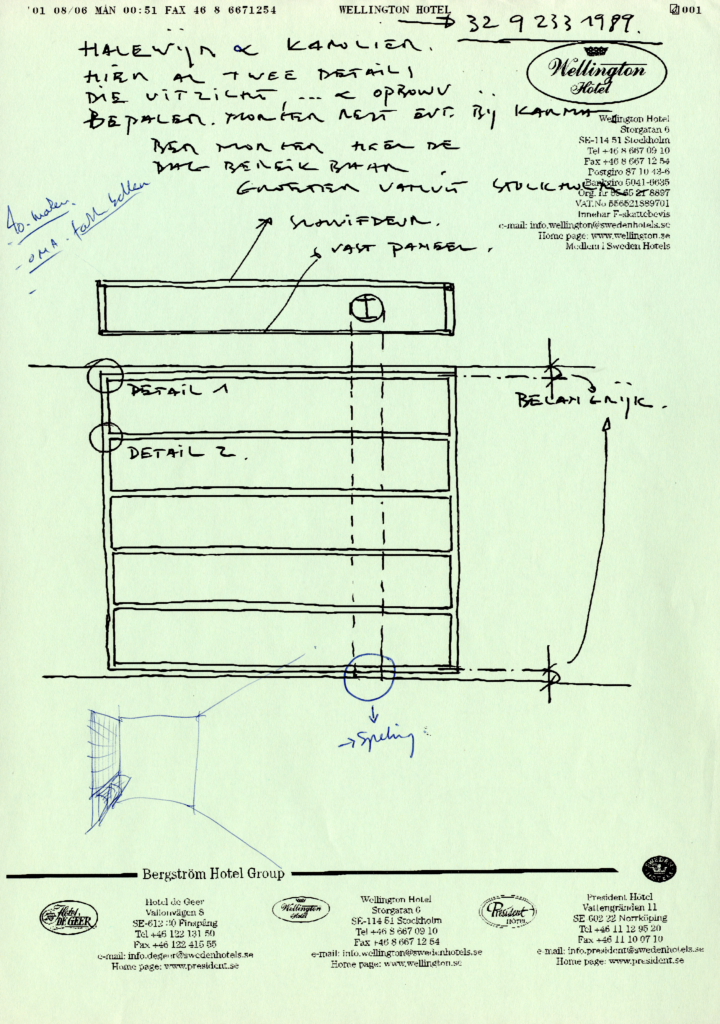 '01 08/06 MÅN 00:51 FAX 46 8 6671254 WELLINGTON HOTEL 001
→ 32 9 233 1989.
HALEWIJN & KAROLIEN.
HIER AL TWEE DETAILS
DIE UITZICHT, ... & OPBOUW
BEPALEN. MORGEN REST EVT. BIJ KARMA
BEN MORGEN HEEL DE
DAG BEREIKBAAR.
GROETEN VANUIT STOCKHOLM
Wellington
Hotel
Wellington Hotel
Storgatan 6
SE-114 51 Stockholm
Tel +46 8 667 09 10
Fax +46 8 667 12 54
Postgiro 87 10 43-6
Bankgiro 5041-6635
Org. nr
VAT.No 556521889701
Innehar F-skattebevis
e-mail: info.wellington@swedenhotels.se
Home page: www.wellington.se
Medlem i Sweden Hotels
to. maken.
- OMA.
SCHUIFDEUR.
VAST PANEEL.
DETAIL 1
BELANGRIJK.
DETAIL 2.
→ Speling
Bergström Hotel Group
SWEDEN
HOTELS
Hotel
DE GEER
Hotel de Geer
Vallonvägen 8
SE-612 30 Finspång
Tel +46 122 131 50
Fax +46 122 415 55
e-mail: info.degeer@swedenhotels.se
Home page: www.president.se
Wellington
Hotel
Wellington Hotel
Storgatan 6
SE-114 51 Stockholm
Tel +46 8 667 09 10
Fax +46 8 667 12 54
e-mail: info.wellington@swedenhotels.se
Home page: www.wellington.se
President
HOTEL
President Hotel
Vattengränden 11
SE 602 22 Norrköping
Tel +46 11 12 95 20
Fax +46 11 10 07 10
e-mail: info.president@swedenhotels.se
Home page: www.president.se